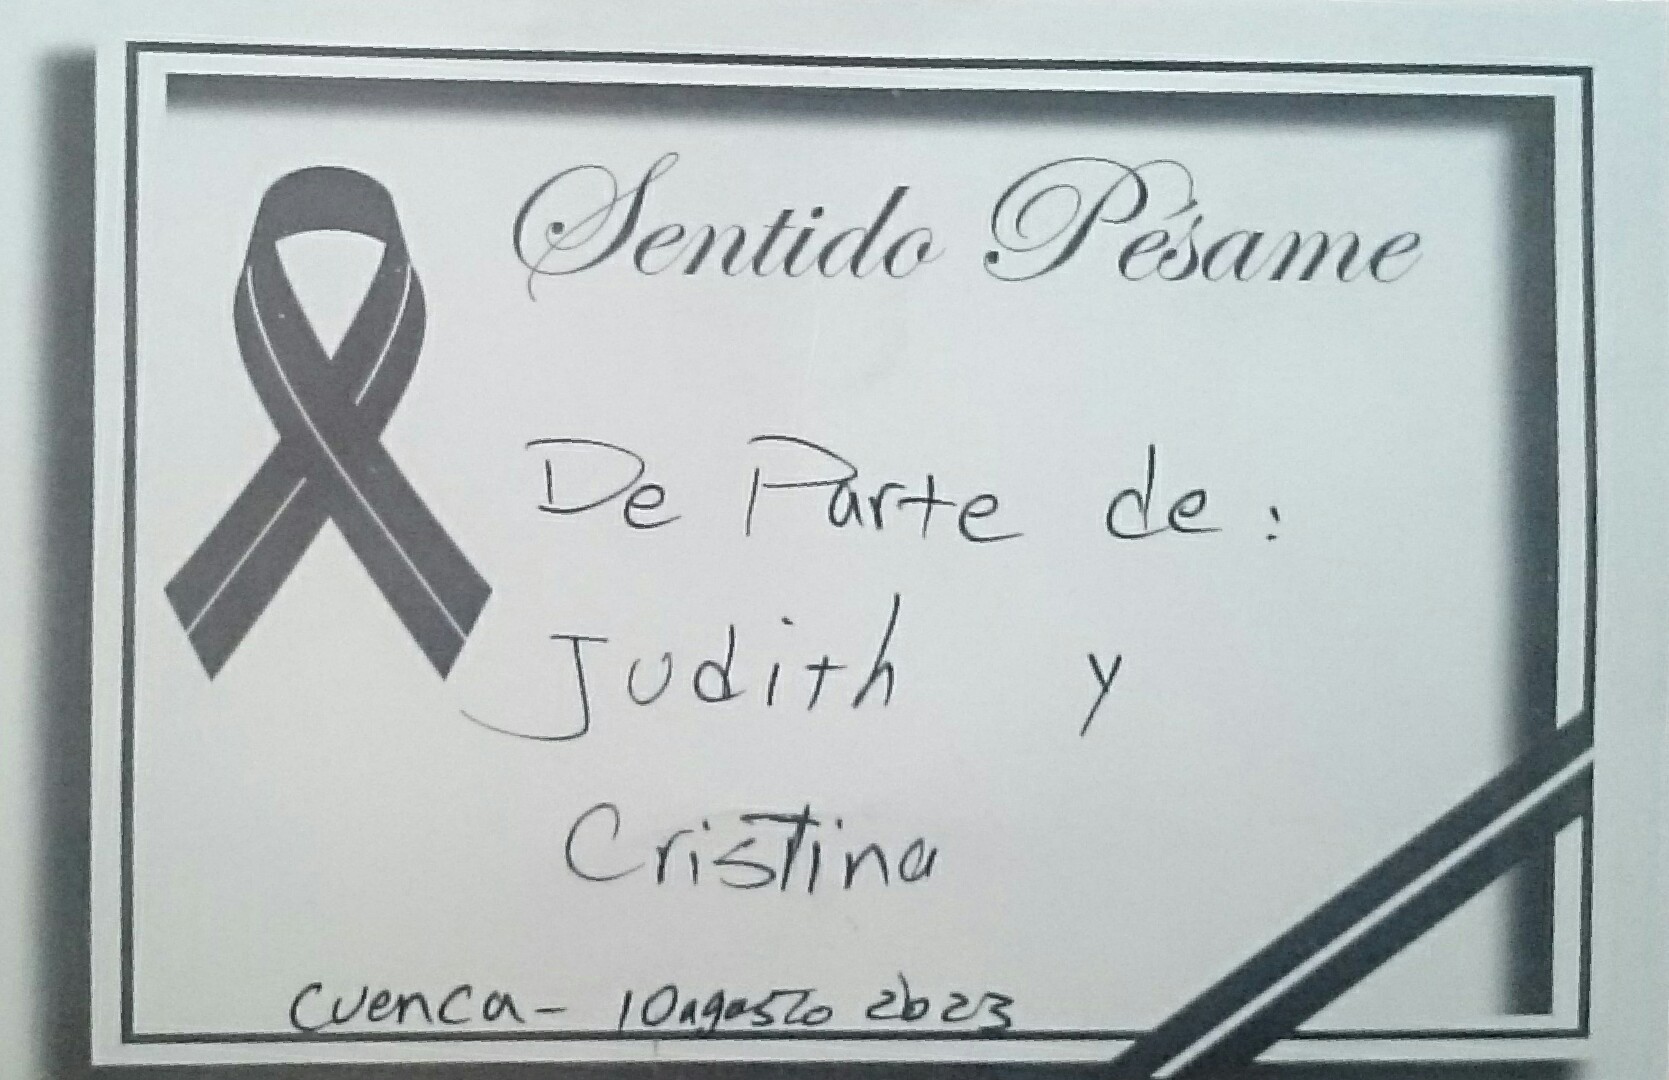 Sentido Pésame
De Parte de :
Judith y
Cristina
Cuenca - 10 agosto 2023